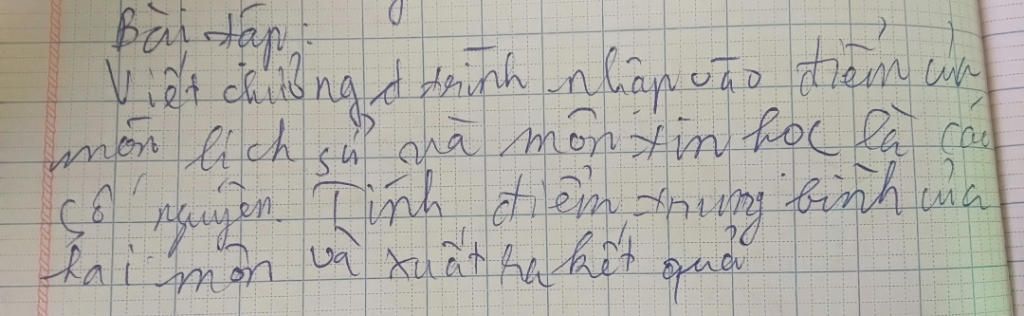 Bài tập:
Viết chương trình nhập vào điểm của
môn lịch sử và môn tin học là các
số nguyên. Tính điểm trung bình của
hai môn và xuất ra kết quả